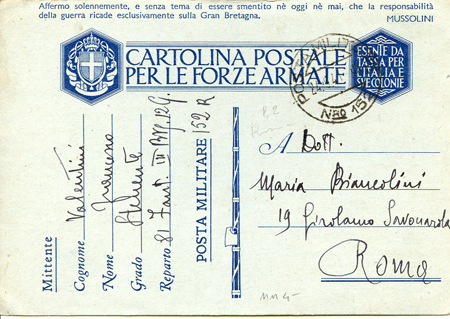 Affermo solennemente, e senza tema di essere smentito nè oggi nè mai, che la responsabilità
della guerra ricade esclusivamente sulla Gran Bretagna.
MUSSOLINI
CARTOLINA POSTALE
PER LE FORZE ARMATE
ESENTE DA
TASSA PER
L'ITALIA E
SUE COLONIE
POSTA MILITARE
Nro 152
A Dott.
Maria Biancolini
19 Girolamo Savonarola
Roma
Mittente
Cognome Valentini
Nome Francesco
Grado
Reparto 81 Fant. III
POSTA MILITARE 152 R